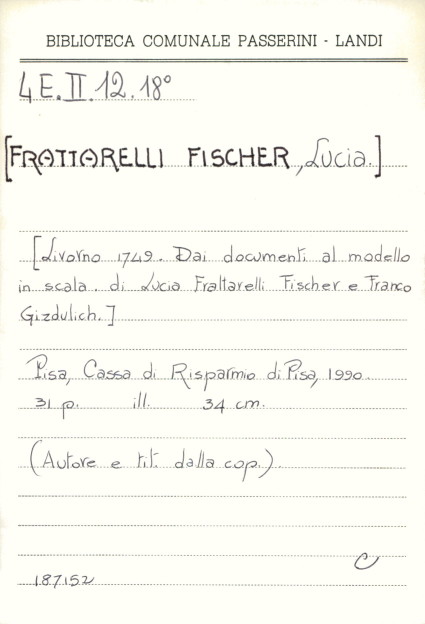 BIBLIOTECA COMUNALE PASSERINI - LANDI
4E.II.12.18°
[FRATTARELLI FISCHER, Lucia.]
[Livorno 1749. Dai documenti al modello
in scala. di Lucia Frattarelli Fischer e Franco
Gizdulich.]
Pisa, Cassa di Risparmio di Pisa, 1990.
31 p. ill. 34 cm.
(Autore e tit. dalla cop.)
C
187152